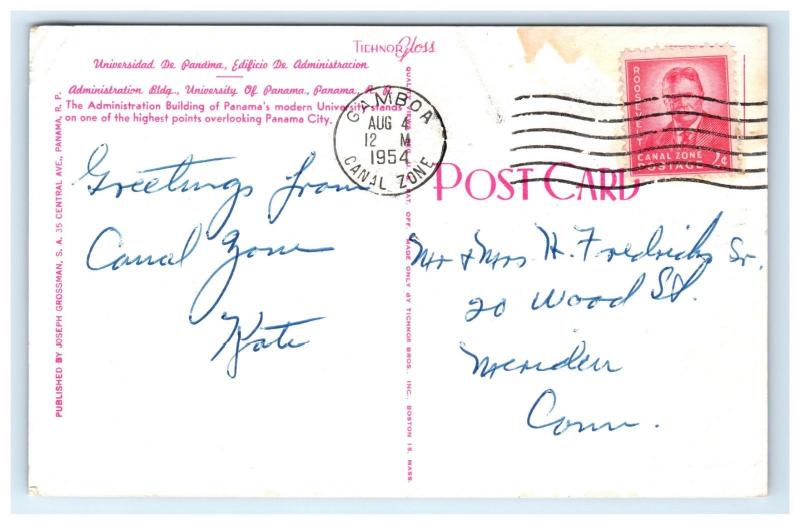 TICHNOR Gloss
Universidad De Panáma, Edificio De Administracion
Administration Bldg., University Of Panama, Panama, R. P.
The Administration Building of Panama's modern University stands
on one of the highest points overlooking Panama City.
PUBLISHED BY JOSEPH GROSSMAN, S. A. 35 CENTRAL AVE., PANAMA, R. P.
PAT. OFF. MADE ONLY BY TICHNOR BROS., INC., BOSTON 15, MASS.
GAMBOA
AUG 4
12 M
1954
CANAL ZONE
ROOSEVELT
CANAL ZONE
POSTAGE
POST CARD
Greetings from
Canal Zone
Kate
Mr & Mrs H. Fredricks Sr.
20 Wood St.
Meriden
Conn.